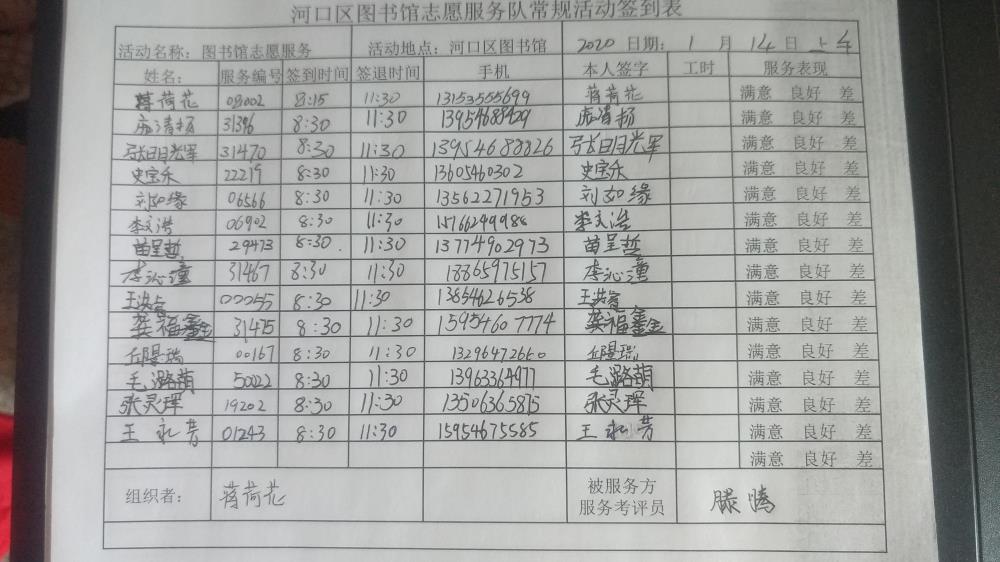 河口区图书馆志愿服务队常规活动签到表
活动名称：图书馆志愿服务 活动地点：河口区图书馆 2020 日期：1 月 14 日 上午
姓名： 服务编号 签到时间 签退时间 手机 本人签字 工时 服务表现
蒋荷花 08002 8:15 11:30 13153555699 蒋荷花 满意 良好 差
庞清扬 31396 8:30 11:30 庞清扬 满意 良好 差
弓长日月光军 31470 8:30 11:30 13954688826 弓长日月光军 满意 良好 差
史宝乐 22219 8:30 11:30 13605460302 史宝乐 满意 良好 差
刘如缘 06566 8:30 11:30 13562271953 刘如缘 满意 良好 差
李文浩 06902 8:30 11:30 15766299988 李文浩 满意 良好 差
苗呈哲 29473 8:30 11:30 13774902973 苗呈哲 满意 良好 差
李沁潼 31467 8:30 11:30 18865975157 李沁潼 满意 良好 差
王浩睿 00055 8:30 11:30 13854626538 王浩睿 满意 良好 差
龚福鑫 31475 8:30 11:30 15954607774 龚福鑫 满意 良好 差
丘隄瑞 00167 8:30 11:30 13296472660 丘隄瑞 满意 良好 差
毛潞萌 50022 8:30 11:30 13963364977 毛潞萌 满意 良好 差
张灵珲 19202 8:30 11:30 13506365875 张灵珲 满意 良好 差
王永芳 01243 8:30 11:30 15954675585 王永芳 满意 良好 差
满意 良好 差
组织者： 蒋荷花 被服务方 滕腾
服务考评员